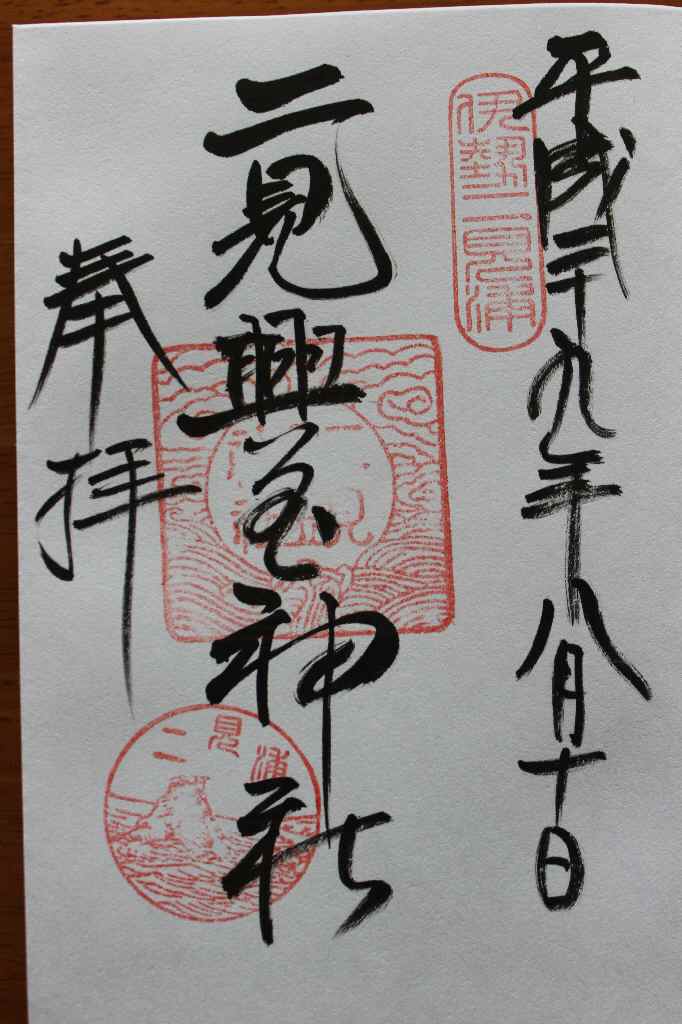 平成二十九年八月十日
伊勢二見浦
二見興玉神社
奉拝
二見浦